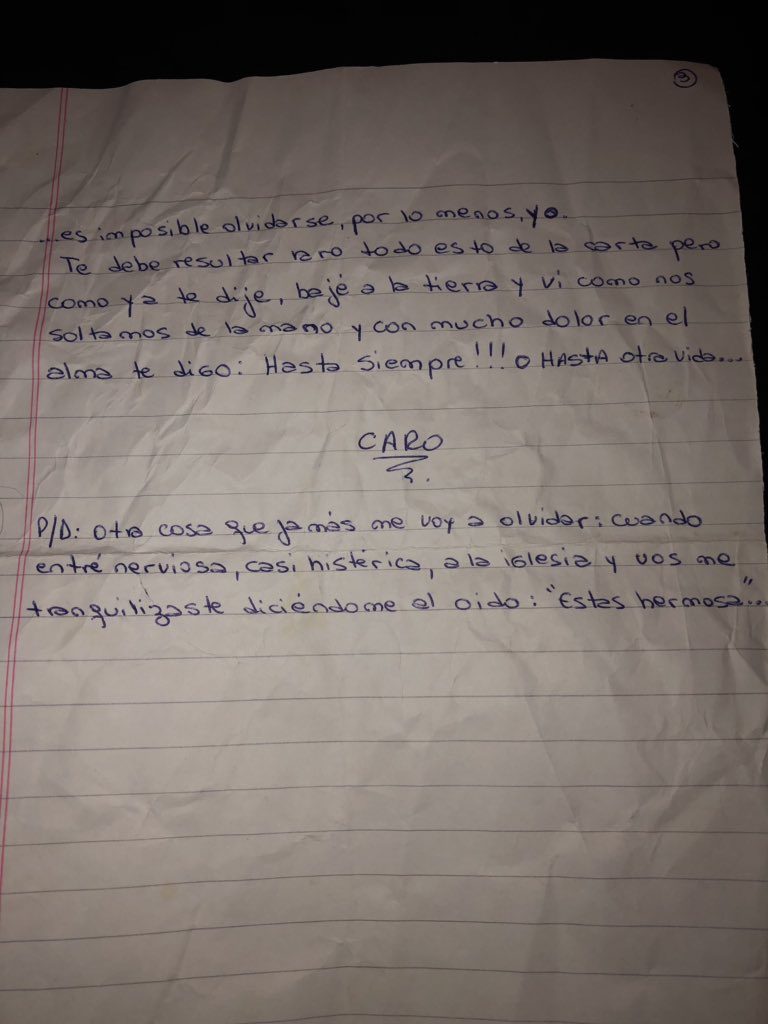 3
...es imposible olvidarse, por lo menos, yo.
Te debe resultar raro todo esto de la carta pero
como ya te dije, bajé a la tierra y vi como nos
soltamos de la mano y con mucho dolor en el
alma te digo: Hasta siempre!!! o HASTA otra vida...
CARO
P/D: otra cosa que jamás me voy a olvidar: cuando
entré nerviosa, casi histérica, a la iglesia y vos me
tranquilizaste diciéndome al oido: "Estas hermosa"...